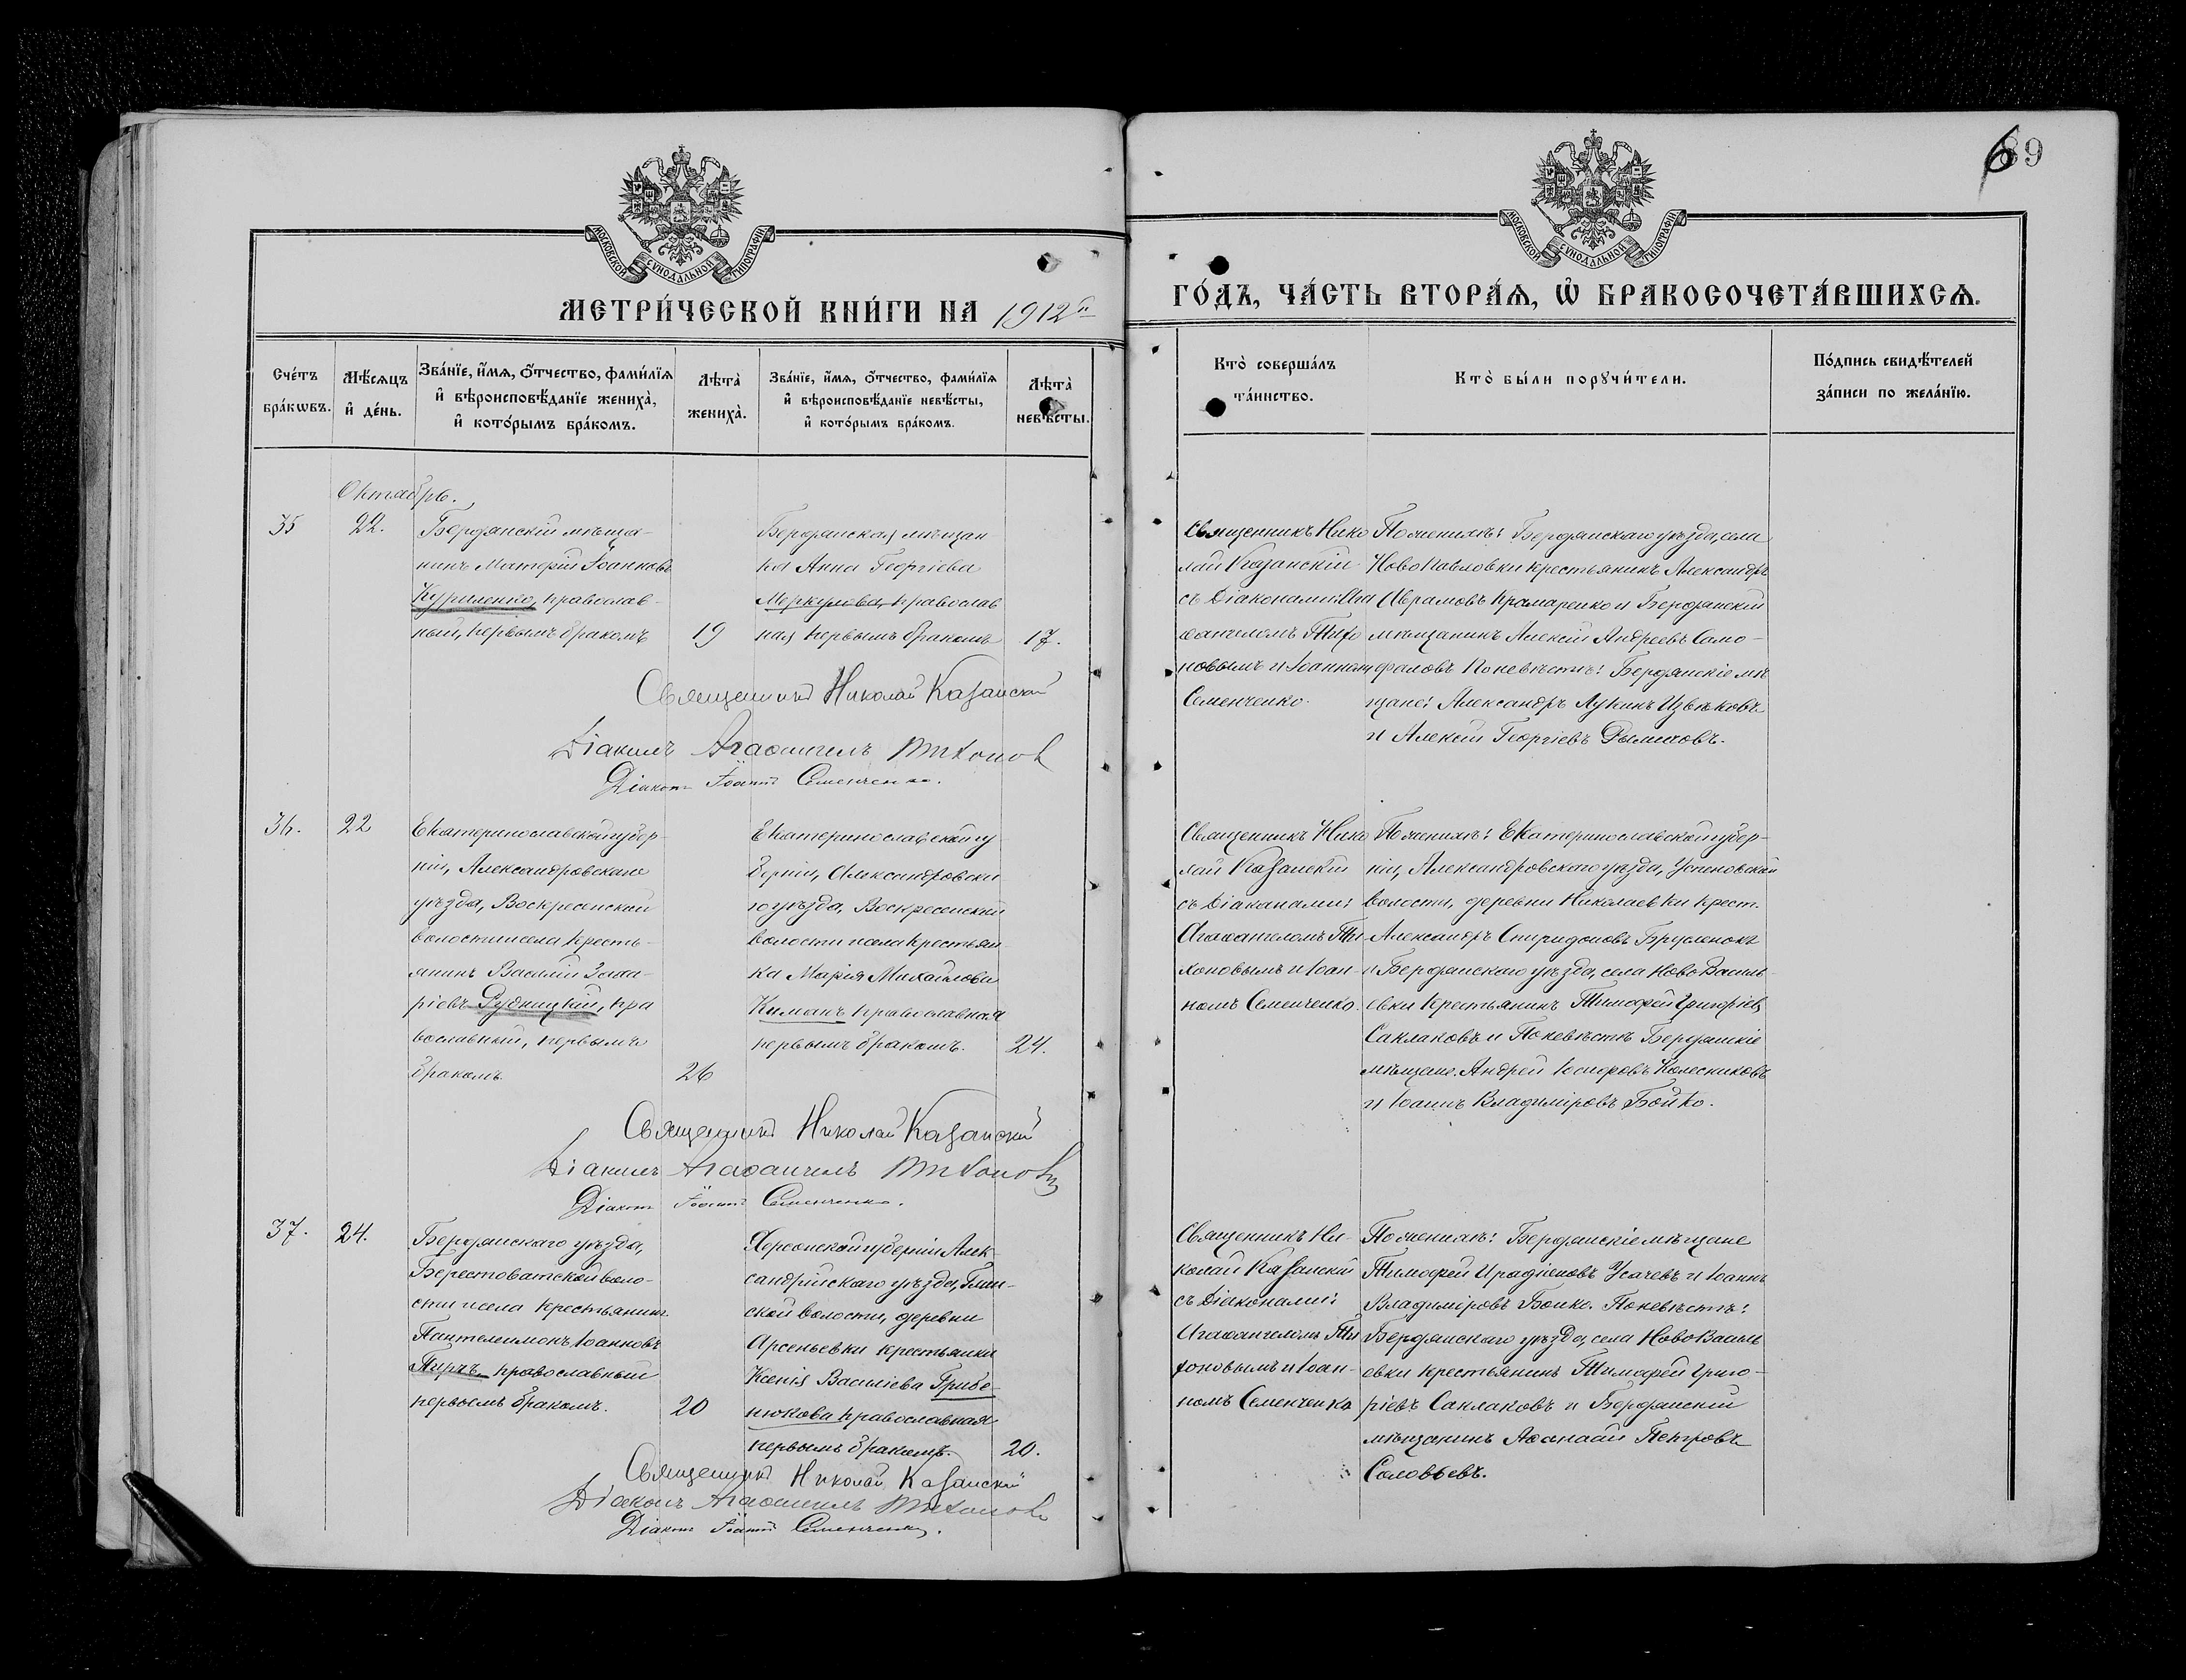 689
МОСКОВСКОЙ СУНОДАЛЬНОЙ ТИПОГРАФІИ
МОСКОВСКОЙ СУНОДАЛЬНОЙ ТИПОГРАФІИ
МЕТРИ́ЧЕСКОЙ КНИ́ГИ НА 1912й
ГО́ДЪ, ЧА́СТЬ ВТОРА́Я, Ѡ БРАКОСОЧЕТА́ВШИХСѦ.
Сче́тъ бра́кѡвъ.
Мѣ́сяцъ и҆ де́нь.
Зва́нїе, и҆́мя, ѻ҆́тчество, фами́лїя и҆ вѣроисповѣ́данїе жениха̀, и҆ кото́рымъ бра́комъ.
Лѣта̀ жениха̀.
Зва́нїе, и҆́мя, ѻ҆́тчество, фами́лїя и҆ вѣроисповѣ́данїе невѣ́сты, и҆ кото́рымъ бра́комъ.
Лѣта̀ невѣ́сты.
Кто̀ соверша́лъ та́инство.
Кто̀ бы́ли порꙋчи́тели.
По́дпись свидѣ́телей за́писи по жела́нїю.
Октябрь.
35
22.
Бердянскій мѣща-
нинъ Матөій Іоанновъ
Куриленко, православ-
ный, первымъ бракомъ
19
Бердянская мѣщан
ка Анна Георгіева
Меркулова, православ
ная первымъ бракомъ
17.
Священникъ Нико
лай Казанскій
съ Діаконами: Ага
ѳангеломъ Тихо
новымъ и Іоанномъ
Семенченко.
По женихѣ: Бердянскаго уѣзда, села
НовоПавловки крестьянинъ Александръ
Аврамовъ Крамаренко и Бердянскій
мѣщанинъ Алексій Андреевъ Само-
фаловъ По невѣстѣ: Бердянскіе мѣ
щане: Александръ Лукинъ
и Алексій Георгіевъ
Священникъ Николай Казанскій
Діаконъ Агаѳангелъ Тихоновъ
Діаконъ Іоаннъ Семенченко.
36.
22
Екатеринославской губер-
ніи, Александровскаго
уѣзда, Воскресенской
волости и села кресть-
янинъ Василій Зиха-
ріевъ Рудницкій, пра
вославный, первымъ
бракомъ
26
Екатеринославской гу
берніи, Александровска
го уѣзда, Воскресенской
волости и села крестьян
ка Марія Михайлова
Киманъ православная
первымъ бракомъ.
24.
Священникъ Нико
лай Казанскій
съ Діаконами:
Агаѳангеломъ Ти
хоновымъ и Іоан-
номъ Семенченко.
По женихѣ: Екатеринославской губер-
ніи, Александровскаго уѣзда, Успеновской
волости, деревни Николаевки крест.
Александръ Спиридоновъ Брусленокъ
и Бердянскаго уѣзда, села НовоВасиль-
евки крестьянинъ Тимофей Григоріевъ
Саклаковъ и По невѣстѣ Бердянскіе
мѣщане. Андрей Іосифовъ Колесниковъ
и Іоаннъ Владиміровъ Бойко.
Священникъ Николай Казанскій
Діаконъ Агаѳангелъ Тихоновъ
Діаконъ Іоаннъ Семенченко.
37.
24.
Бердянскаго уѣзда,
Берестоватской воло-
сти и села крестьянинъ
Пантелеимонъ Іоанновъ
православный
первымъ бракомъ.
20
Херсонской губерніи Алек-
сандрійскаго уѣзда, Глин-
ской волости, деревни
Арсеньевки крестьянка
Ксенія Василіева Грибе-
нюкова православная
первымъ бракомъ.
20.
Священникъ Ни-
колай Казанскій
съ Діаконами:
Агаѳангеломъ Ти
хоновымъ и Іоан-
номъ Семенченко
По женихѣ: Бердянскіе мѣщане
Тимофей Иродіоновъ Усачевъ и Іоаннъ
Владиміровъ Бойко. По невѣстѣ:
Бердянскаго уѣзда, села НовоВасиль
евки крестьянинъ Тимофей Григо-
ріевъ Саклаковъ и Бердянскій
мѣщанинъ Аѳанасій Петровъ
Соловьевъ.
Священникъ Николай Казанскій
Діаконъ Агаѳангелъ Тихоновъ
Діаконъ Іоаннъ Семенченко.